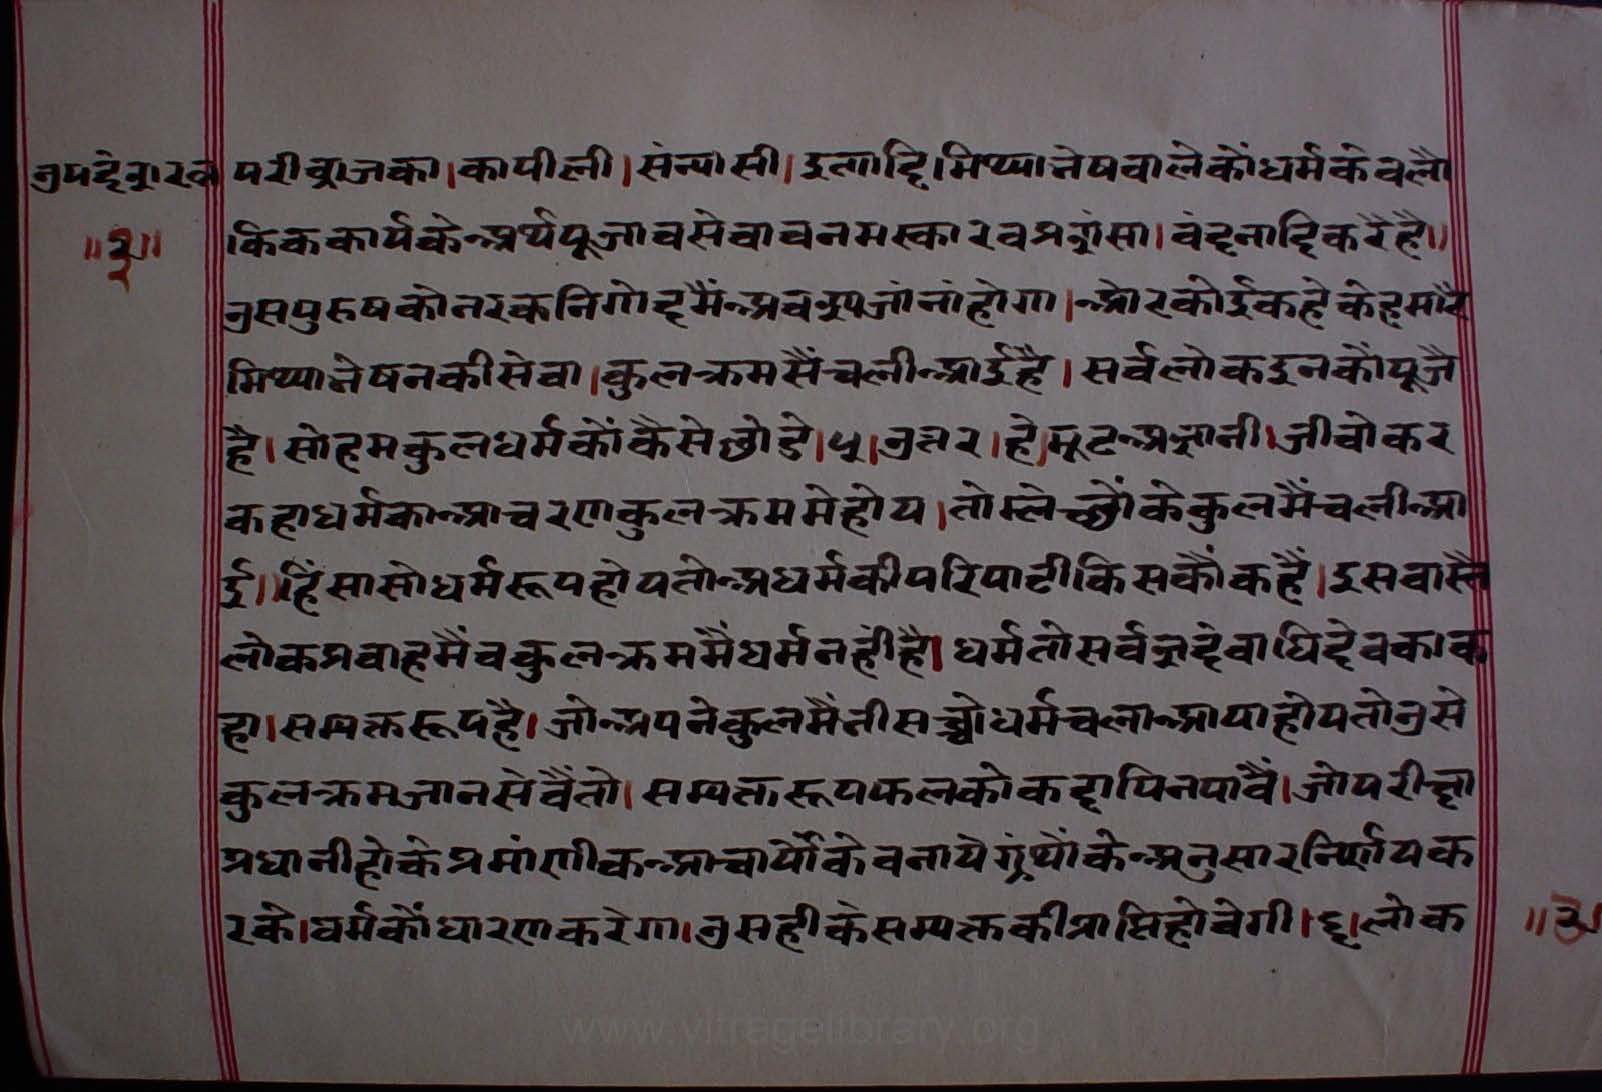 उपदेशरत्न
॥३॥
परीव्राजका।कापीली।संन्यासी।इत्यादि।मिथ्याभेषवालेकोंधर्मकेवलौ
किककार्यकेअर्थपूजावसेवावनमस्कारवप्रशंसा।वंदनादिकरैहै॥
उसपुरुषकोनरकनिगोदमैंअवश्यजांनांहोगा।ओरकोईकहेकेहमारै
मिथ्याभेषनकीसेवा।कुलक्रमसैंचलीआईहै।सर्वलोकइनकौपूजै
है।सोहमकुलधर्मकौंकैसेछोडे।५।उत्तर।हेमूढअज्ञानी।जीवोकर
कहाधर्मकाआचरणकुलक्रममेहोय।तोम्लेच्छोंकेकुलमैंचलीआ
ई॥हिंसासोधर्मरूपहोयतोअधर्मकीपरिपाटीकिसकौंकहैं।इसवास्तै
लोकप्रवाहमैंवकुलक्रममैंधर्मनहींहै।धर्मतोसर्वज्ञदेवाधिदेवकाक
हा।सम्यक्तरूपहै।जोअपनेकुलमैंतीसच्चोधर्मचलाआयाहोयतोउसे
कुलक्रमजानसेवैंतो।सम्यक्तरूपफलकोकदापिनपावैं।जोपरीक्षा
प्रधानीहोकेप्रमांणीकआचार्योंकेवनायेग्रंथोंकेअनुसारनिर्णयक
रके।धर्मकौंधारणकरेगा।उसहीकेसम्यक्तकीप्राप्तिहोवेगी।६।लोक
॥३
www.vitragelibrary.org